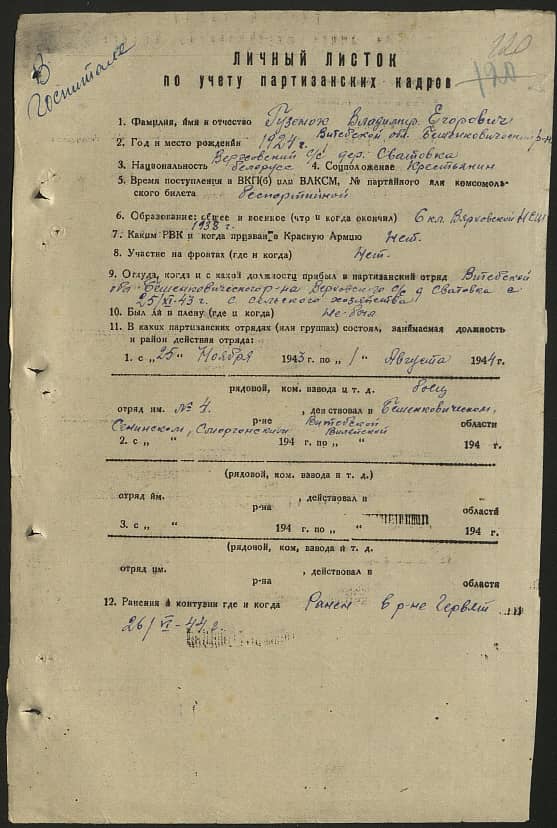 В
госпитале
120
120
ЛИЧНЫЙ ЛИСТОК
по учету партизанских кадров
1. Фамилия, имя и отчество Гузенок Владимир Егорович
2. Год и место рождения 1924 г. Витебской обл. Бешенковический р-н
Верховский с/с дер. Сватовка
3. Национальность белорус 4. Соцположение Крестьянин
5. Время поступления в ВКП(б) или ВЛКСМ, № партайного или комсомоль-
ского билета беспортийной
6. Образование: общее и военное (что и когда окончил) 6 кл. Верховской НСШ
1938 г.
7. Каким РВК и когда призван в Красную Армию Нет.
8. Участие на фронтах (где и когда) Нет.
9. Откуда, когда и с какой должности прибыл в партизанский отряд Витебской
обл Бешенковического р-на Верховского с/с д Сватовка в
25/XI-43 г. с сельского хозяйства
10. Был ли в плену (где и когда) не был
11. В каких партизанских отрядах (или группах) состоял, занимаемая должность
и район действия отряда:
1. с „25" Ноября 1943 г. по „1" Августа 1944 г.
боец
рядовой, ком. взвода и т. д.
отряд им. № 4. , действовал в Бешенковическом,
Сенинском, Сморгонском р-не Витебской Вилейской области
2. с „ " 194 г. по „ " 194 г.
(рядовой, ком. взвода и т. д.)
отряд им. , действовал в
р-на области
3. с „ " 194 г. по „ " 194 г.
(рядовой, ком. взвода и т. д.
отряд им. , действовал в
р-на области
12. Ранения и контузии где и когда Ранен в р-не Гервят
26/VI-44 г.